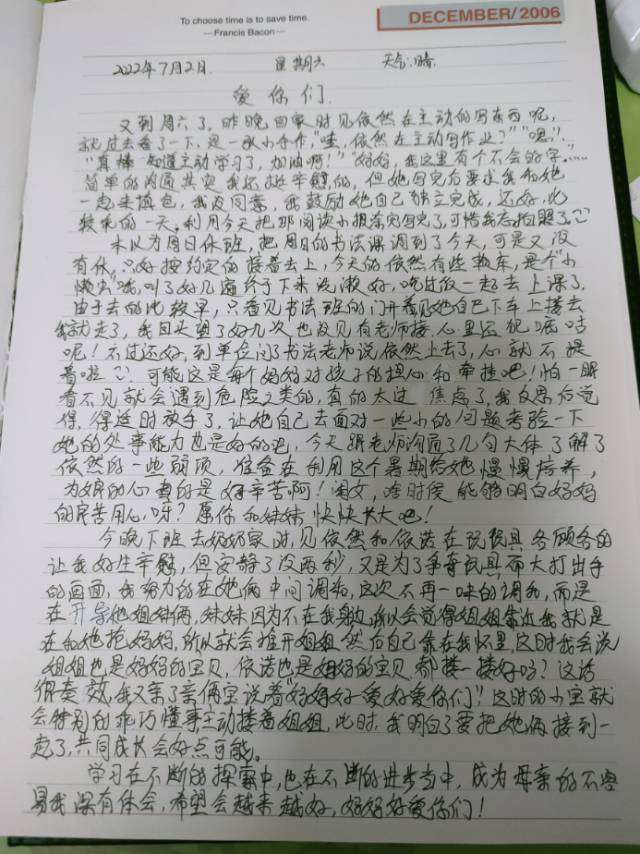 To choose time is to save time.
— Francis Bacon —
DECEMBER/2006
2022年7月2日 星期六 天气:晴
爱你们
又到周六了,昨晚回家时见依然在主动的写东西呢,
就过去看了一下,是一张小手作,"哇,依然在主动写作业?""嗯!"
"真棒 知道主动学习了,加油啊!""妈妈,我这里有个不会的字……
简单的沟通其实我还挺幸福的,但她写完后要求我和她
一起来填色,我没同意,我鼓励她自己独立完成,还好,比
较乖的一天。利用今天把那阅读小报写完了,可惜我忘拍照了
本以为周日休班,把周日的书法课调到了今天,可是又没
有休,只好按约定的接着去上,今天的依然有些赖床,是个小
懒虫哦,叫了好几遍终于下来洗漱好,吃过饭一起去上课了.
由于去的比较早,只看见书法班的门开着见她自己下车上楼去
我就走了,我回头望了好几次也没见有老师接,心里还犯嘀咕
呢!不过还好,到单位问了书法老师说依然上去了,心就不提
着啦 可能这是每个妈妈对孩子的担心和牵挂吧!怕一眼
看不见就会遇到危险之类的,真的太过 焦虑了,我反思后觉
得,得适时放手了,让她自己去面对一些小的问题考验一下
她的处事能力也是好的吧,今天跟老师沟通了几句大体了解了
依然的一些弱项,准备在利用这个暑期给她慢慢培养,
为娘的心真的是好辛苦啊!闺女,啥时候能够明白妈妈
的良苦用心呀?愿你和妹妹快快长大吧!
今晚下班去奶奶家时,见依然和依诺在玩玩具各顾各的
让我好生幸福,但安静了没两秒,又是为了争夺玩具而大打出手
的画面,我努力的在她俩中间调和,这次不再一味的调和,而是
在开导她姐妹俩,妹妹因为不在我身边所以会觉得姐姐靠近我就是
在和她抢妈妈,所以就会推开姐姐然后自己靠在我怀里,这时我会说
姐姐也是妈妈的宝贝,依诺也是妈妈的宝贝,都搂一搂好吗?这话
很奏效,我又亲了亲俩宝说着"妈妈好爱好爱你们!"这时的小宝就
会特别的乖巧懂事主动搂着姐姐,此时,我明白了要把她俩接到一
起了,共同成长会好点可能。
学习在不断的探索中,也在不断的进步当中,成为母亲的不容
易我深有体会,希望会越来越好,妈妈好爱你们!